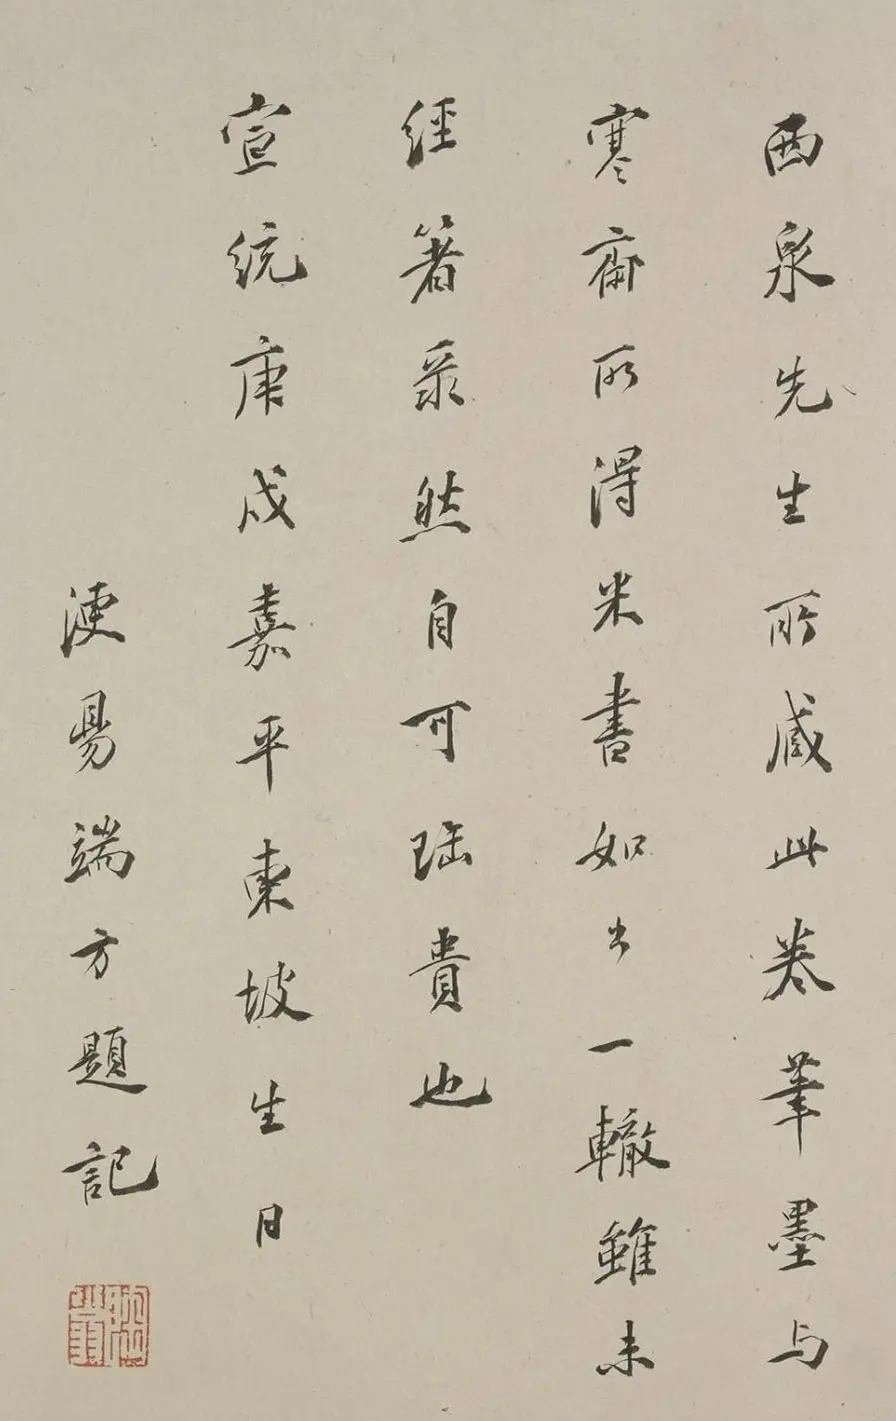 西泉先生所藏此卷筆墨与
寒齋所得米書如出一轍雖未
經箸彔然自可珤貴也
宣統庚戌嘉平東坡生日
浭昜端方題記